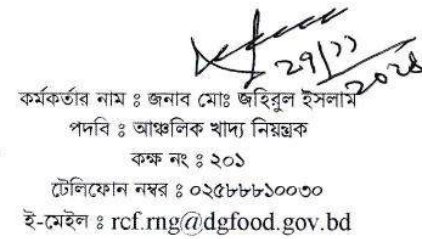 ২১/১১
২০২৪
কর্মকর্তার নাম ঃ জনাব মোঃ জহিরুল ইসলাম
পদবি ঃ আঞ্চলিক খাদ্য নিয়ন্ত্রক
কক্ষ নং ঃ ২০১
টেলিফোন নম্বর ঃ ০২৫৮৮৮১০০৩০
ই-মেইল ঃ rcf.rng@dgfood.gov.bd